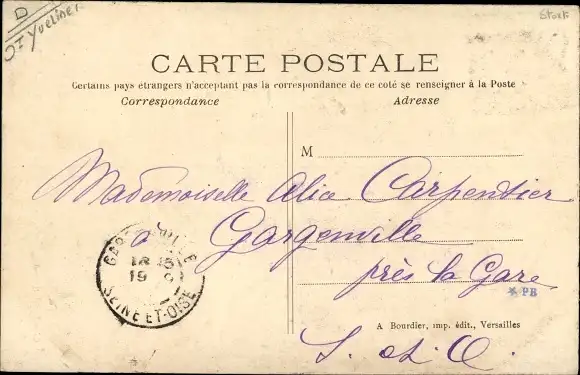 D
Yvelines
CARTE POSTALE
Certains pays étrangers n'acceptant pas la correspondance de ce coté se renseigner à la Poste
Correspondance
Adresse
M
Mademoiselle Alice Carpentier
à Gargenville
près la Gare
S. et O.
GARGENVILLE
18
19
SEINE-ET-OISE
* PB
A Bourdier, imp. édit., Versailles